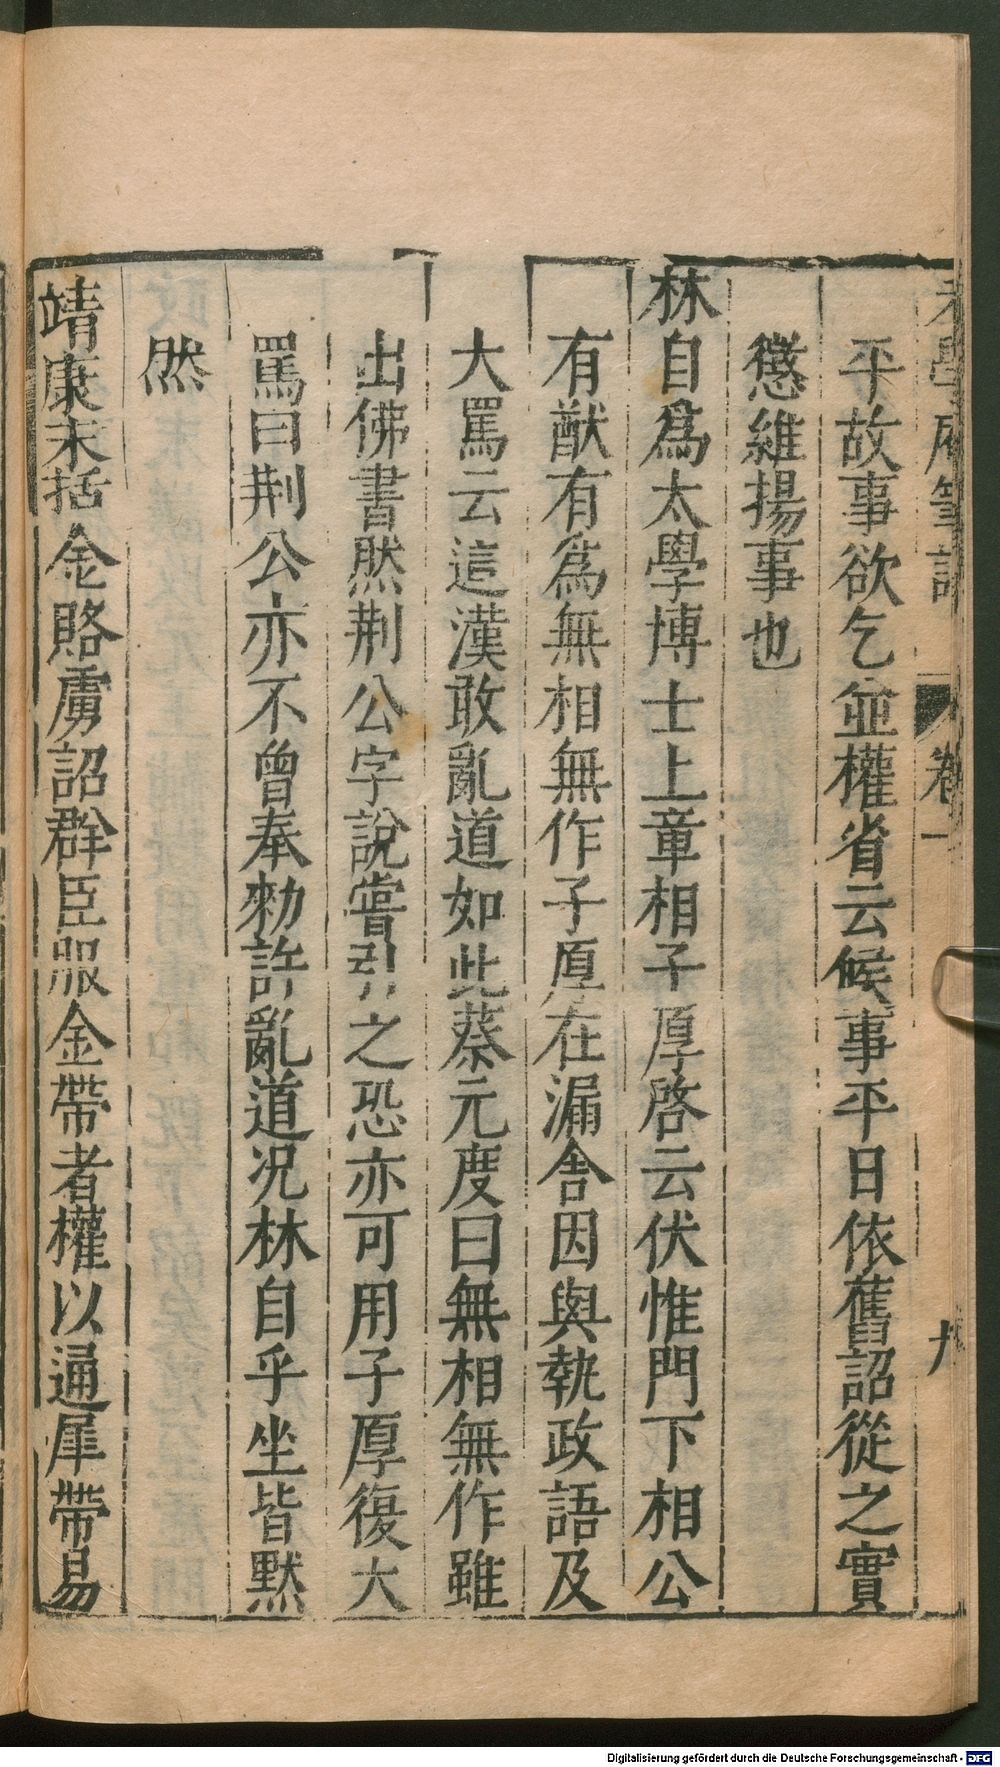 老學庵筆記 卷一 九
平故事欲乞並權省云候事平日依舊詔從之實
懲維揚事也
林自爲太學博士上章相子厚啓云伏惟門下相公
有猷有爲無相無作子厚在漏舎因與執政語及
大罵云這漢敢亂道如此蔡元度曰無相無作雖
出佛書然荆公字說嘗引之恐亦可用子厚復大
罵曰荆公亦不曾奉勑許亂道况林自乎坐皆黙
然
靖康末括金賂虜詔群臣服金帶者權以通犀帶易
Digitalisierung gefördert durch die Deutsche Forschungsgemeinschaft - DFG